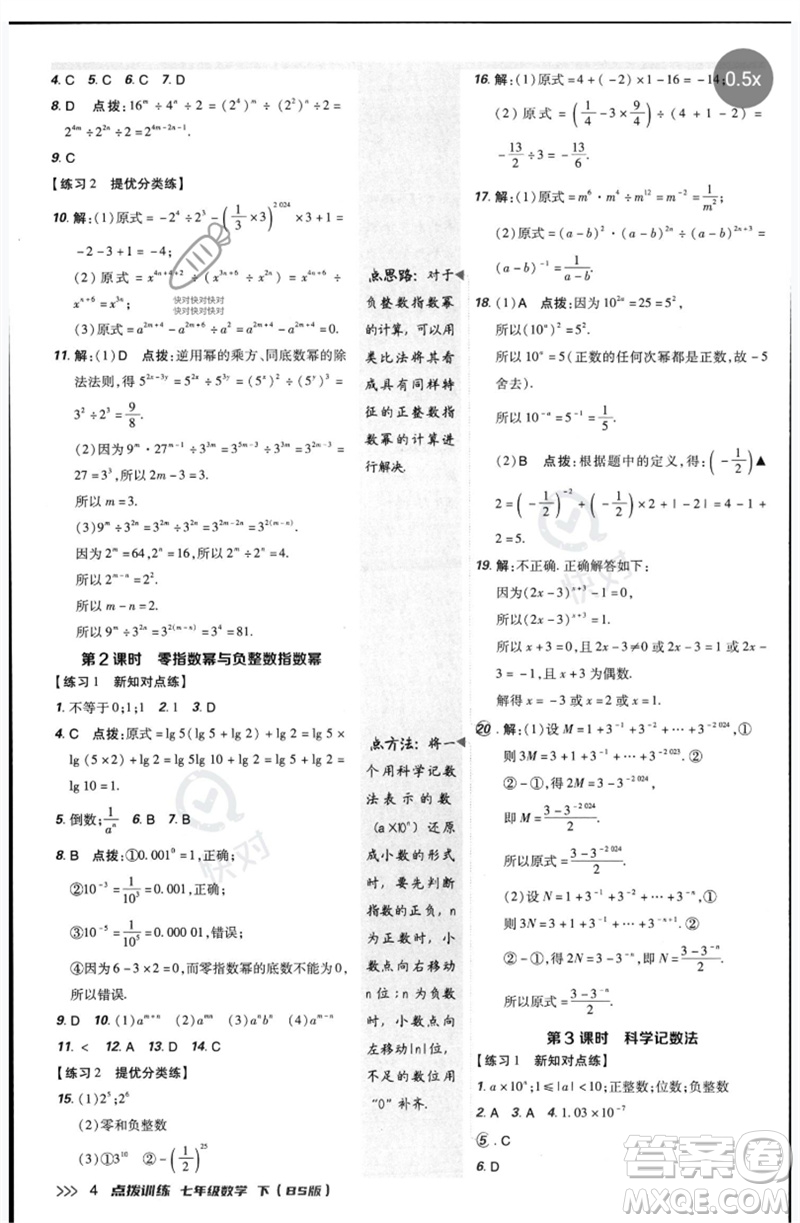 4. C  5. C  6. C  7. D
8. D  点拨：16^m÷4^n÷2=(2^4)^m÷(2^2)^n÷2=
2^{4m}÷2^{2n}÷2=2^{4m-2n-1}.
9. C
【练习2  提优分类练】
10. 解：(1)原式=-2^4÷2^3-(1/3×3)^{2 024}×3+1=
-2-3+1=-4;
(2)原式=x^{4n+4+2}÷x^{3n+6}=x^{4n+6}÷x^{3n+6}÷
x^{n+6}=x^{3n};
(3)原式=a^{2m+4}-a^{2m+6}÷a^2=a^{2m+4}-a^{2m+4}=0.
11. 解：(1)D  点拨：逆用幂的乘方、同底数幂的除
法法则,得5^{2x-3y}=5^{2x}÷5^{3y}=(5^x)^2÷(5^y)^3=
3^2÷2^3=9/8.
(2)因为9^m·27^{m-1}÷3^{2m}=3^{2m}·3^{3m-3}÷3^{2m}=
27=3^3,所以3m-3=3.
所以m=3.
(3)9^m÷3^{2n}=3^{2m}÷3^{2n}=3^{2m-2n}=3^{2(m-n)}.
因为2^m=64,2^n=16,所以2^m÷2^n=64÷16=4.
所以2^{m-n}=2^2.
所以m-n=2.
所以9^m÷3^{2n}=3^{2(m-n)}=3^4=81.
第2课时  零指数幂与负整数指数幂
【练习1  新知对点练】
1. 不等于0;1;1  2. 1  3. D
4. C  点拨：原式=lg 5(lg 5+lg 2)+lg 2=lg 5×
lg (5×2)+lg 2=lg 5+lg 2=lg (5×2)=
lg 10=1.
5. 倒数;1/a^n  6. B  7. B
8. B  点拨：①0.001^0=1,正确;
②10^{-3}=1/10^3=0.001,正确;
③10^{-5}=1/10^5=0.000 01,错误;
④因为6-3×2=0,而零指数幂的底数不能为0,
所以错误.
9. D  10. (1)a^{m+n}  (2)a^{mn}  (3)a^n b^n  (4)a^{m-n}
11. <  12. A  13. D  14. C
【练习2  提优分类练】
15. (1)2^5;2^6
(2)零和负整数
(3)①3^{10}  ②-(2/3)^{25}
点思路：对于
负整数指数幂
的计算，可以用
类比法将其看
成具有同样特
征的正整数指
数幂的计算进
行解决.
点方法：将一
个用科学记数
法表示的数
(a×10^n)还原
成小数的形式
时，要先判断
指数的正负，n
为正数时，小
数点向右移动
n位；n为负数
时，小数点向
左移动|n|位，
不足的数位用
“0”补齐.
16. 解：(1)原式=4+(-2)×1-16=-14;
(2)原式=(1/4-3×9/4)÷(4+1-2)=
-13/2÷3=-13/6.
17. 解：(1)原式=m^6·m^4÷m^{12}=m^{-2}=1/m^2;
(2)原式=(a-b)^2·(a-b)^{2n}÷(a-b)^{2n+3}=
(a-b)^{-1}=1/(a-b).
18. (1)A  点拨：因为10^{2a}=25=5^2,
所以(10^a)^2=5^2.
所以10^a=5(正数的任何次幂都是正数,故-5
舍去).
所以10^{-a}=5^{-1}=1/5.
(2)B  点拨：根据题中的定义,得:(-1/2)▲
2=(-1/2)^{-2}+(-1/2)×2+|-2|=4-1+
2=5.
19. 解：不正确.正确解答如下:
因为(2x-3)^{x+3}-1=0,
所以(2x-3)^{x+3}=1.
所以x+3=0,且2x-3≠0或2x-3=1或
2x-3=-1,且x+3为偶数.
解得x=-3或x=2或x=1.
20. 解：(1)设M=1+3^{-1}+3^{-2}+…+3^{-2 024},①
则3M=3+1+3^{-1}+…+3^{-2 023}.②
②-①,得2M=3-3^{-2 024},
即M=(3-3^{-2 024})/2.
所以原式=(3-3^{-2 024})/2.
(2)设N=1+3^{-1}+3^{-2}+…+3^{-n},①
则3N=3+1+3^{-1}+…+3^{-n+1}.②
②-①,得2N=3-3^{-n},即N=(3-3^{-n})/2.
所以原式=(3-3^{-n})/2.
第3课时  科学记数法
【练习1  新知对点练】
1. a×10^n;1≤|a|<10;正整数;位数;负整数
2. A  3. A  4. 1.03×10^{-7}
5. C
6. D
>>> 4  点拨训练  七年级数学  下(BS版)
0.5x
快对快对快对
快对快对快对
快对
快对
作业精灵